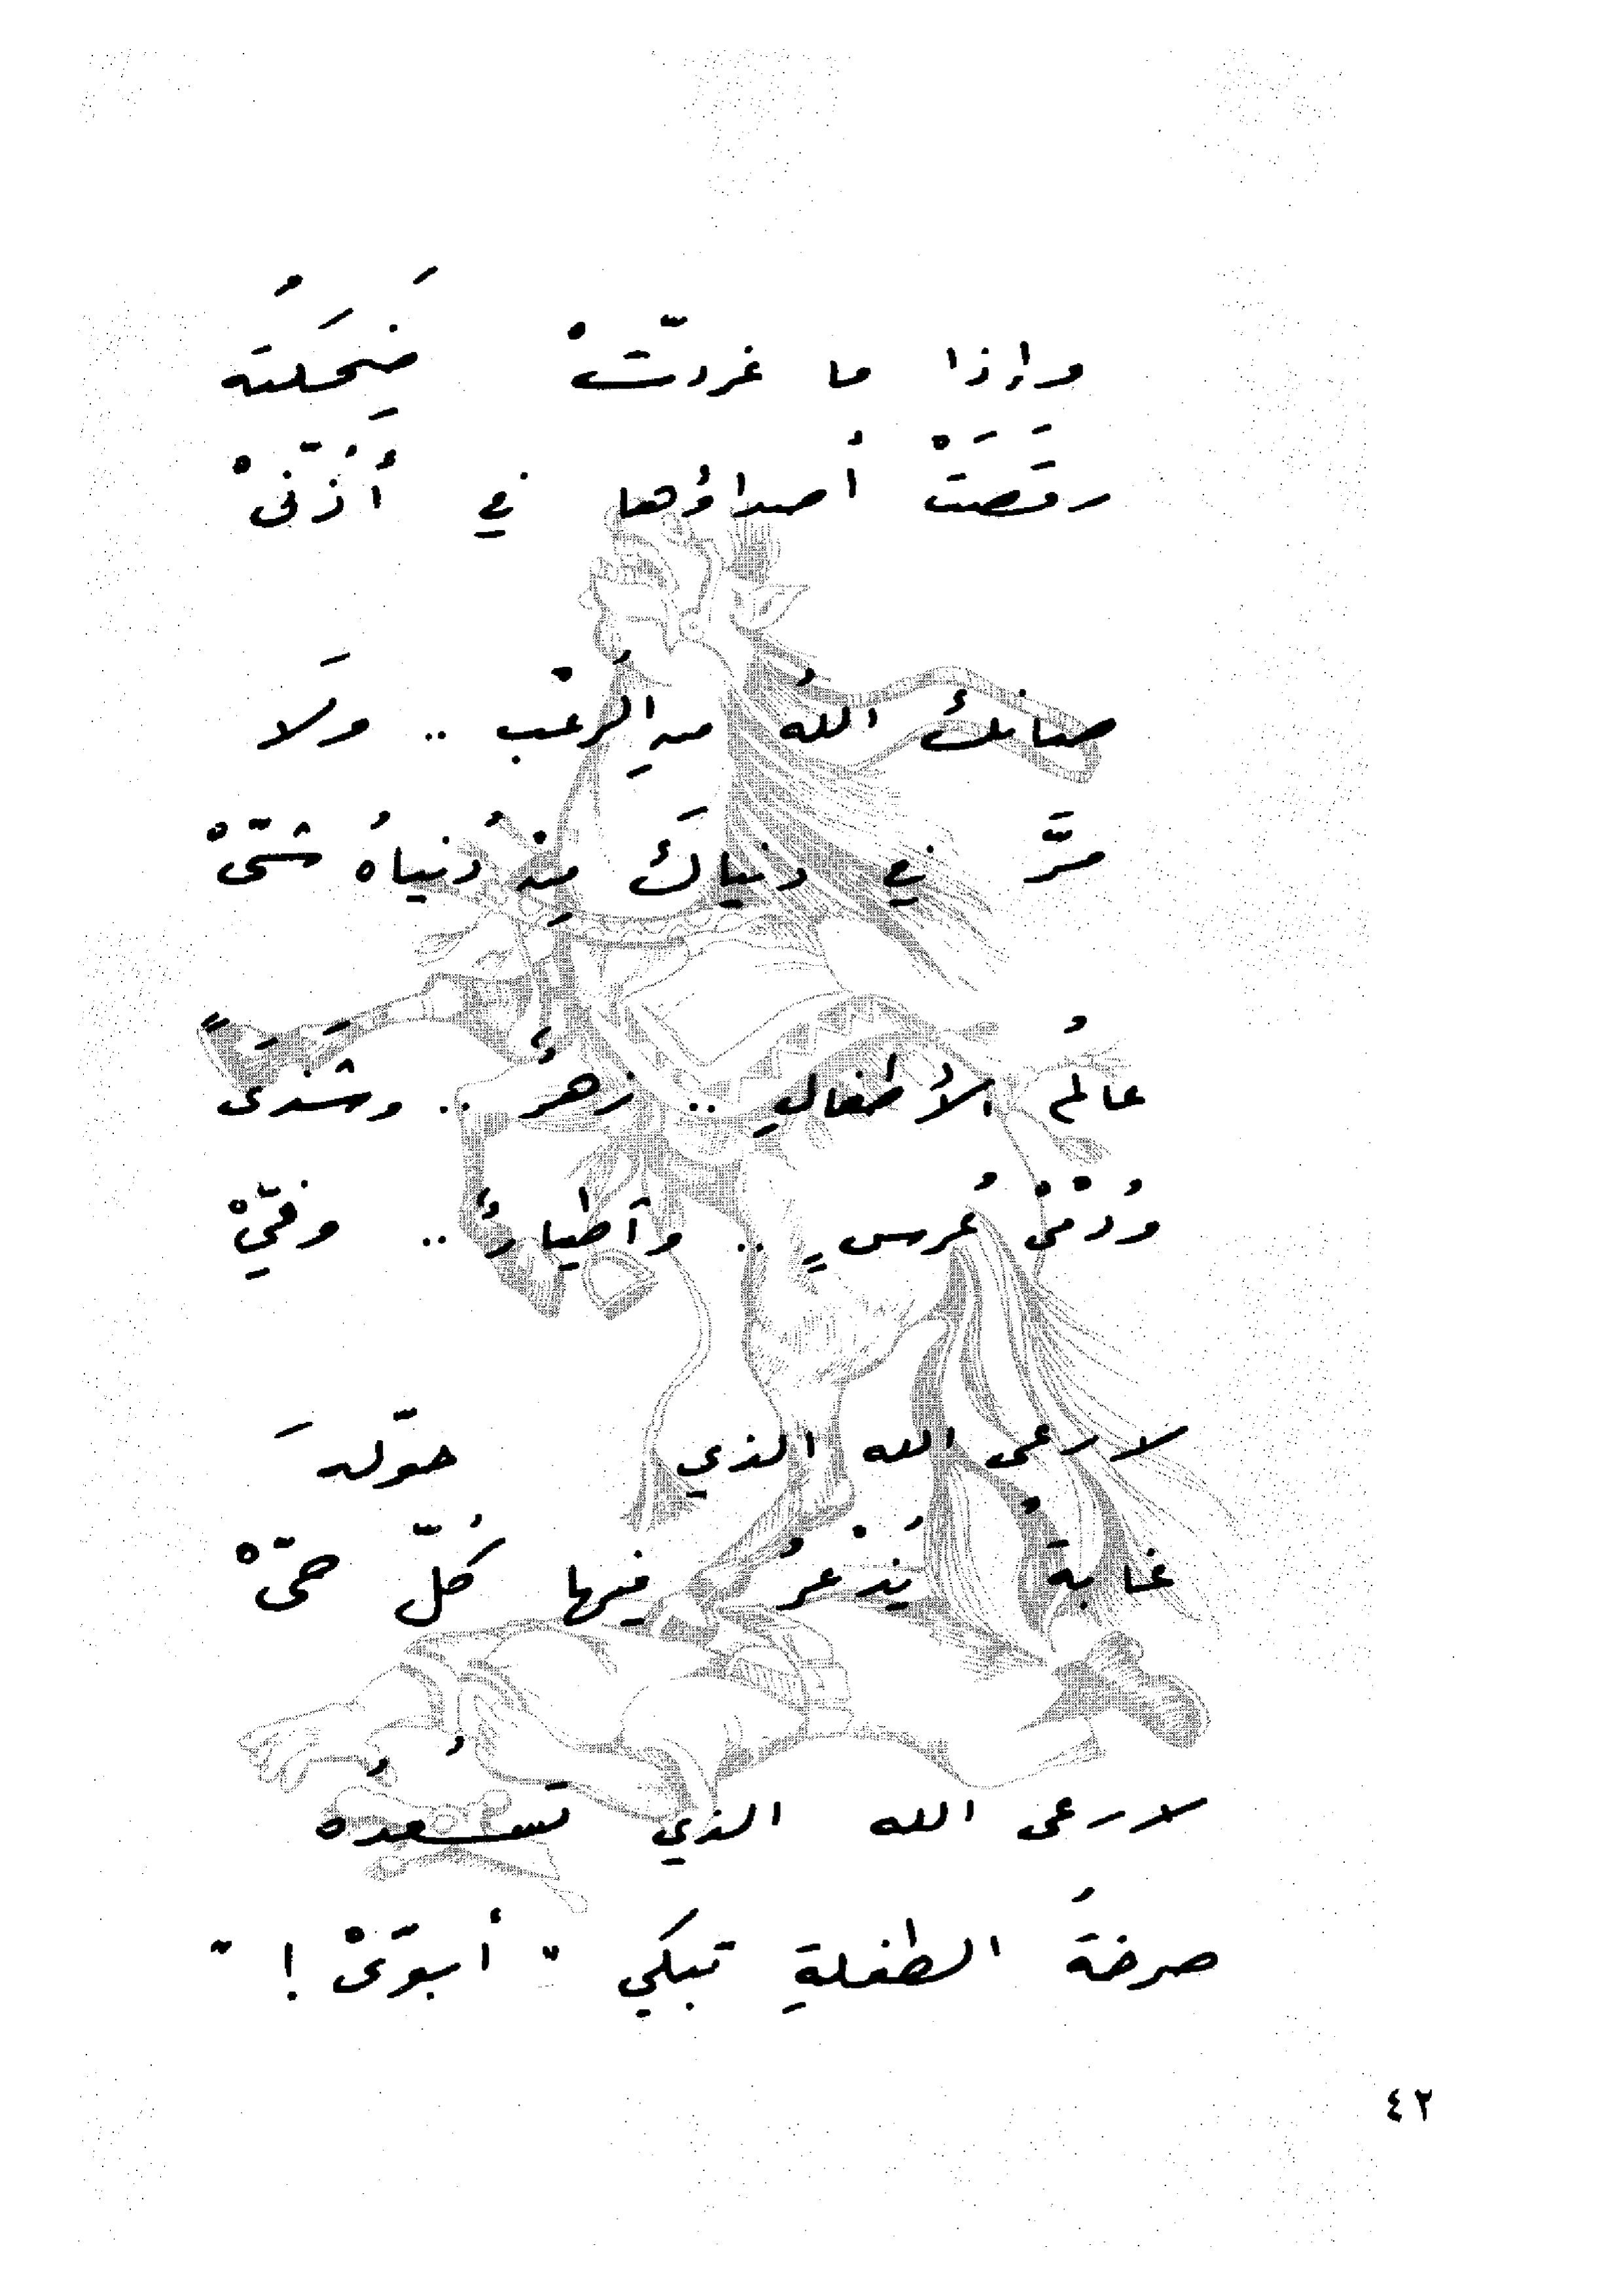 وإذا ما غردّتْ ضَحِكَتُه
رقَصَتْ أصداؤُها في أُذُنّىْ
صانكَ اللهُ منِ الرُعْب .. ولا
مرَّ في دنياكَ مِنْ دُنياهُ شىّْ
عالمُ الأطفالِ .. زهرٌ .. وشَذَىً
ودُمْىْ عُرسٍ .. وأطيارٌ .. وفيّْ
لا رعى الله الذي حوّلهَ
غابةً يُذْعرُ فيها كُلّ حىّْ
لا رعى الله الذي تُسعدُه
صرخةُ الطفلةِ تبكي " أبوىّْ ! "
٤٢